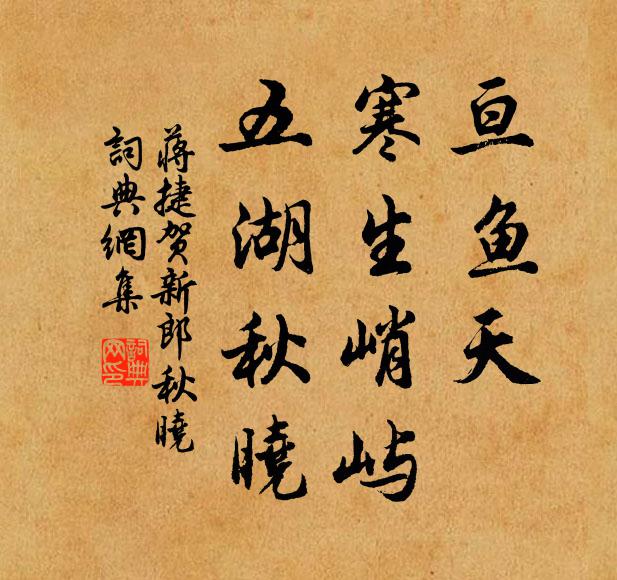 亘鱼天
寒生峭屿
五湖秋曉
蔣捷賀新郎秋曉
詞典網集
詞典網印